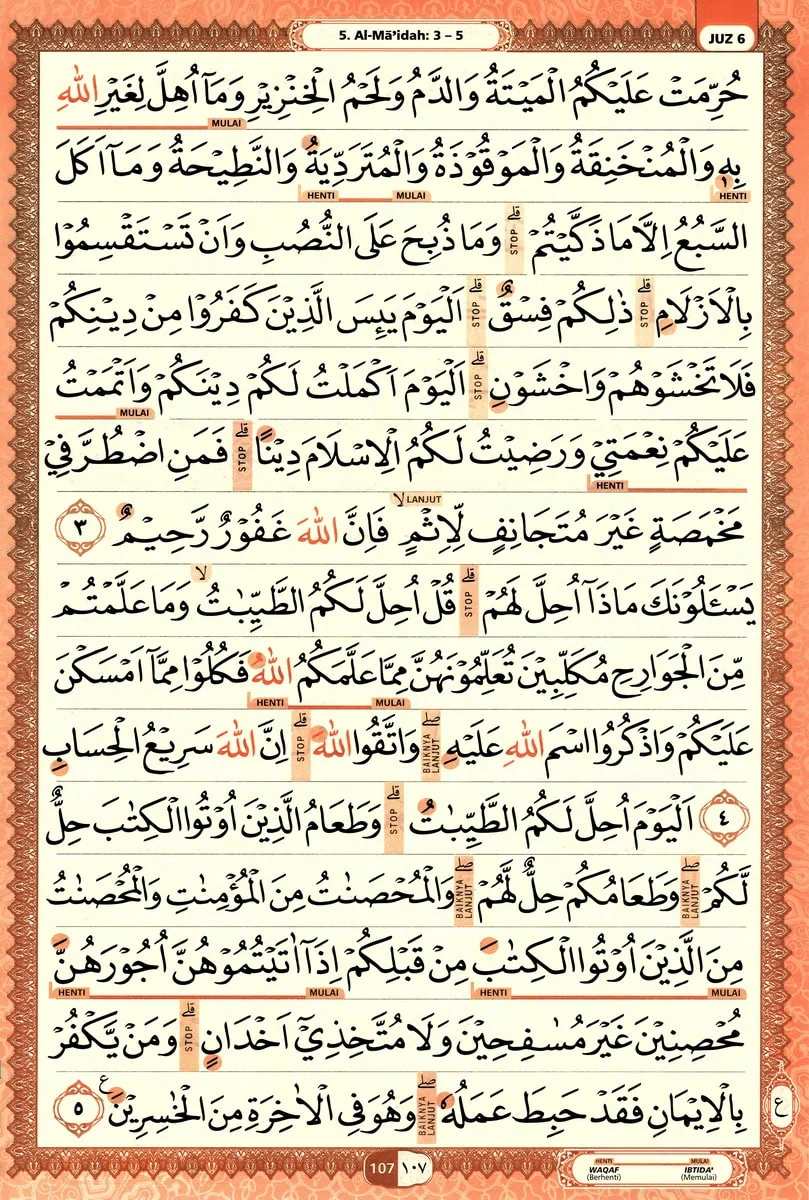 5. Al-Mā’idah: 3 – 5
JUZ 6
حُرِّمَتْ عَلَيْكُمُ الْمَيْتَةُ وَالدَّمُ وَلَحْمُ الْخِنْزِيْرِ وَمَآ اُهِلَّ لِغَيْرِ اللّٰهِ
MULAI
بِهٖ وَالْمُنْخَنِقَةُ وَالْمَوْقُوْذَةُ وَالْمُتَرَدِّيَةُ وَالنَّطِيْحَةُ وَمَآ اَكَلَ
HENTI MULAI HENTI
السَّبُعُ اِلَّا مَا ذَكَّيْتُمْ ۗ STOP وَمَا ذُبِحَ عَلَى النُّصُبِ وَاَنْ تَسْتَقْسِمُوْا
بِالْاَزْلَامِ ۗ STOP ذٰلِكُمْ فِسْقٌ ۗ STOP اَلْيَوْمَ يَىِٕسَ الَّذِيْنَ كَفَرُوْا مِنْ دِيْنِكُمْ
فَلَا تَخْشَوْهُمْ وَاخْشَوْنِ ۗ STOP اَلْيَوْمَ اَكْمَلْتُ لَكُمْ دِيْنَكُمْ وَاَتْمَمْتُ
MULAI
عَلَيْكُمْ نِعْمَتِيْ وَرَضِيْتُ لَكُمُ الْاِسْلَامَ دِيْنًا ۗ STOP فَمَنِ اضْطُرَّ فِيْ
HENTI
مَخْمَصَةٍ غَيْرَ مُتَجَانِفٍ لِّاِثْمٍ ۙ LANJUT فَاِنَّ اللّٰهَ غَفُوْرٌ رَّحِيْمٌ ٣
يَسْـَٔلُوْنَكَ مَاذَآ اُحِلَّ لَهُمْ ۗ STOP قُلْ اُحِلَّ لَكُمُ الطَّيِّبٰتُ ۙ وَمَا عَلَّمْتُمْ
مِّنَ الْجَوَارِحِ مُكَلِّبِيْنَ تُعَلِّمُوْنَهُنَّ مِمَّا عَلَّمَكُمُ اللّٰهُ فَكُلُوْا مِمَّآ اَمْسَكْنَ
HENTI MULAI
عَلَيْكُمْ وَاذْكُرُوا اسْمَ اللّٰهِ عَلَيْهِ ۖ BAIKNYA LANJUT وَاتَّقُوا اللّٰهَ ۗ STOP اِنَّ اللّٰهَ سَرِيْعُ الْحِسَابِ
٤ اَلْيَوْمَ اُحِلَّ لَكُمُ الطَّيِّبٰتُ ۗ STOP وَطَعَامُ الَّذِيْنَ اُوْتُوا الْكِتٰبَ حِلٌّ
لَّكُمْ ۖ BAIKNYA LANJUT وَطَعَامُكُمْ حِلٌّ لَّهُمْ ۖ BAIKNYA LANJUT وَالْمُحْصَنٰتُ مِنَ الْمُؤْمِنٰتِ وَالْمُحْصَنٰتُ
مِنَ الَّذِيْنَ اُوْتُوا الْكِتٰبَ مِنْ قَبْلِكُمْ اِذَآ اٰتَيْتُمُوْهُنَّ اُجُوْرَهُنَّ
HENTI MULAI HENTI MULAI
مُحْصِنِيْنَ غَيْرَ مُسٰفِحِيْنَ وَلَا مُتَّخِذِيْٓ اَخْدَانٍ ۗ STOP وَمَنْ يَّكْفُرْ
بِالْاِيْمَانِ فَقَدْ حَبِطَ عَمَلُهٗ ۖ BAIKNYA LANJUT وَهُوَ فِى الْاٰخِرَةِ مِنَ الْخٰسِرِيْنَ ࣖ ٥
ع
107 ١٠٧
HENTI MULAI
WAQAF IBTIDA’
(Berhenti) (Memulai)